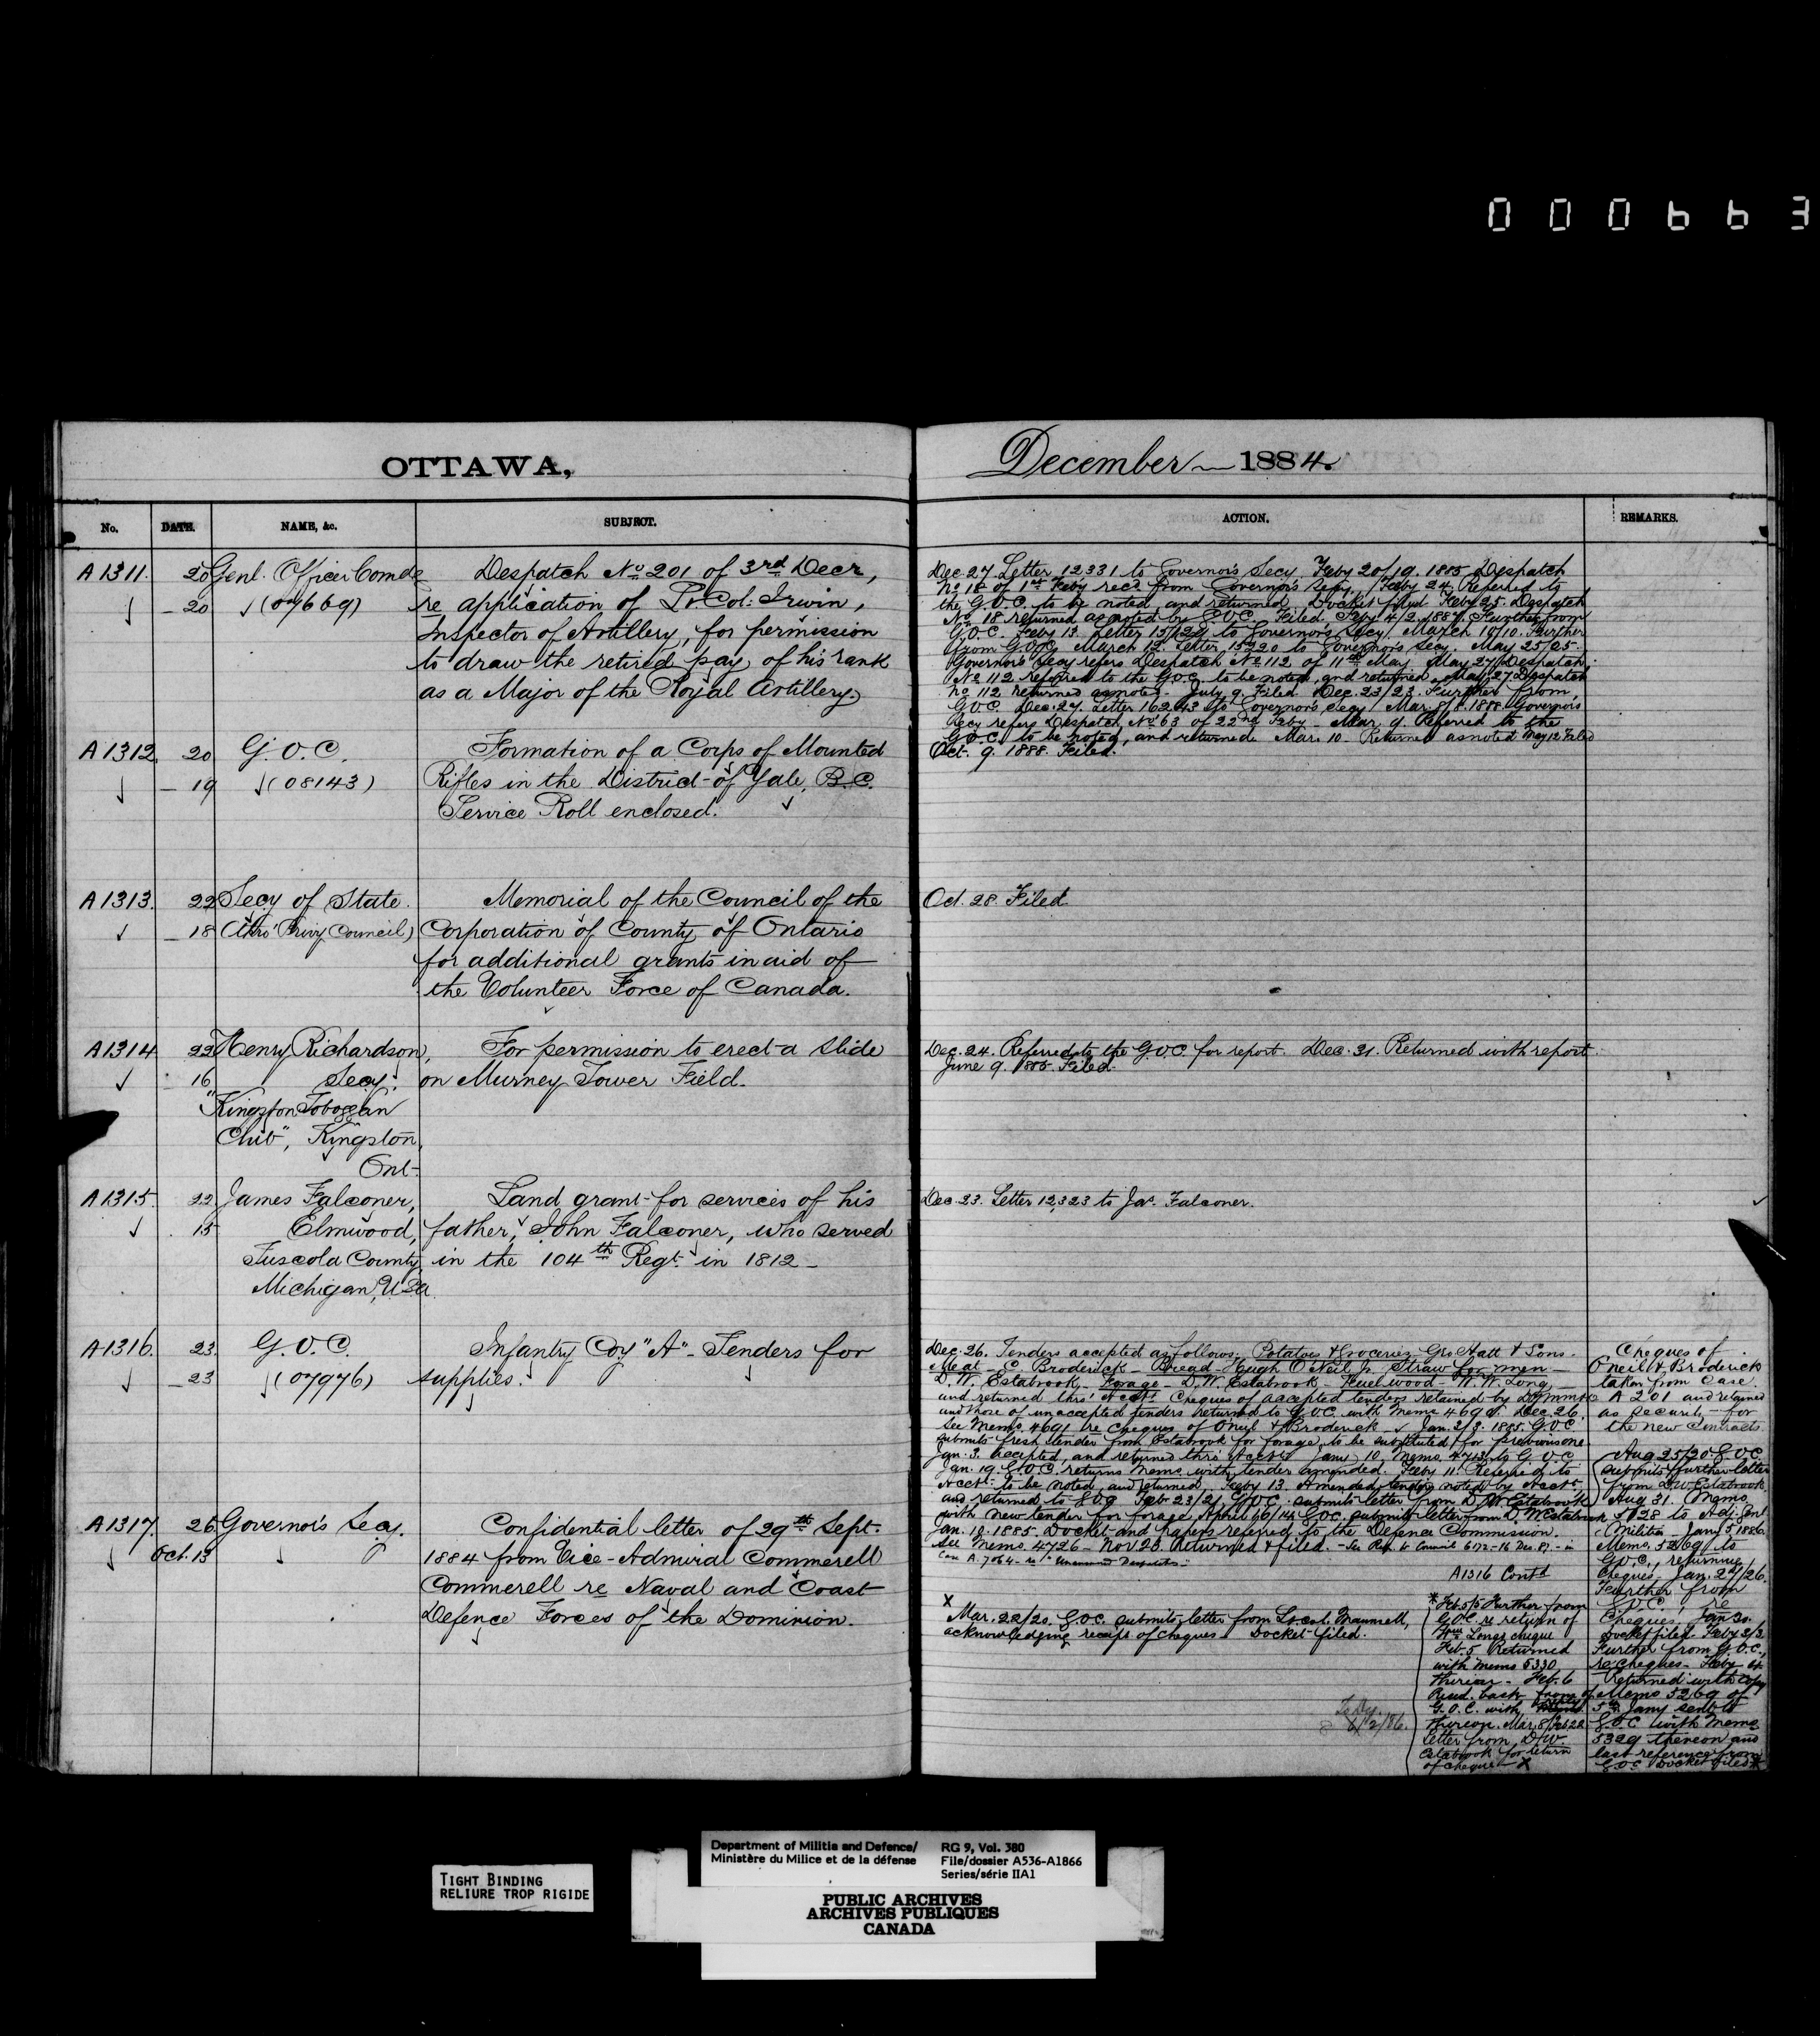 000663
OTTAWA,
December 1884.
No.
DATE.
NAME, &c.
SUBJECT.
ACTION.
REMARKS.
A 1311. 20 Genl. Officer Comdg
— 20 (07669)
Despatch No 201 of 3rd Decr,
re application of Lt Col: Irwin,
Inspector of Artillery, for permission
to draw the retired pay of his rank
as a Major of the Royal Artillery
Dec. 27. Letter 12331 to Governor's Secy. Feby 20/19. 1885 Despatch
No 18 of 1st Feby recd from Governor's Secy. Feby 24. Referred to
the G.O.C. to be noted and returned. Docket filed Feby 25. Despatch
No 18 returned as noted by G.O.C. Filed. Feby 4/2. 1887. Further from
G.O.C. Feby 13. Letter 15129 to Governor's Secy. March 10/10. Further
from G.O.C. March 12. Letter 15220 to Governor's Secy. May 25/25.
Governor's Secy refers Despatch No 112 of 11th May. May 27 Despatch
No 112 referred to the G.O.C. to be noted, and returned. May 27 Despatch
No 112 returned as noted. July 9. Filed. Dec. 23/23. Further from
G.O.C. Dec. 27. Letter 16243 to Governor's Secy. Mar. 8/8. 1888. Governor's
Secy refers Despatch No 63 of 22nd Feby. Mar. 9. Referred to the
G.O.C. to be noted, and returned. Mar. 10. Returned as noted May 12 Filed
Oct. 9. 1888. Filed.
A 1312. 20 G.O.C.
— 19 (08143)
Formation of a Corps of Mounted
Rifles in the District of Yale, B.C.
Service Roll enclosed.
A 1313. 22 Secy of State.
— 18 (thro' Privy Council)
Memorial of the Council of the
Corporation of County of Ontario
for additional grants in aid of
the Volunteer Force of Canada.
Oct. 28. Filed.
A 1314 22 Henry Richardson,
16 Secy.
"Kingston Toboggan
Club", Kingston,
Ont.
For permission to erect a slide
on Murney Tower Field.
Dec. 24. Referred to the G.O.C. for report. Dec. 31. Returned with report.
June 9. 1885. Filed.
A 1315. 22 James Falconer,
15 Elmwood,
Tuscola County
Michigan, U.S.A.
Land grant for services of his
father, John Falconer, who served
in the 104th Regt. in 1812 —
Dec. 23. Letter 12,323 to Jas. Falconer.
A 1316. 23. G.O.C.
— 23 (07976)
Infantry Coy "A" - Tenders for
supplies.
Dec. 26. Tenders accepted as follows: Potatoes & Groceries Geo Hatt & Sons.
Meat — C. Broderick — Bread — Hugh O'Neil Jr. Straw for men —
D. W. Estabrook — Forage — D. W. Estabrook — Fuel wood — W. W. Long,
and returned thro' Acct. Cheques of accepted tenders retained by
and those of unaccepted tenders returned to G.O.C. with memo 4690 Dec. 26.
See Memo. 4691 re Cheques of O'Neil & Broderick. Jan. 2/3. 1885. G.O.C.
submits fresh tender from Estabrook for forage, to be substituted for previous one
Jan. 3. Accepted, and returned thro' Acct. Jany 10. Memo. 4713 to G.O.C.
Jan. 19. G.O.C. returns memo. with tender amended. Feby 11. Referred to
Acct. to be noted, and returned. Feby 13. Amended tender noted by Acct.
and returned to G.O.C. Feb 23/21 G.O.C. submits letter from D. W. Estabrook
with new tender for forage. April 16/14 G.O.C. submits letter from D. W. Estabrook
Cheques of
O'neil & Broderick
taken from case
A 201 and retained
as security for
the new contracts
Aug 25/20 G.O.C.
submits further letter
from D.W. Estabrook
Aug 31. Memo
5128 to Adj. Genl.
Militia — Jany 5 1886.
Memo. 5269 to
G.O.C., returning
Cheques — Jan. 27/26.
Further from
G.O.C. re
Cheques. Jan 30.
Docket filed. Feby 3/3
Further from G.O.C.
re cheques — Feby 4.
Returned with copy
of Memo 5269 of
5th Jany sent to
G.O.C. with memo
5329 thereon and
last reference from
G.O.C. Docket filed *
A 1317. 26 Governor's Secy.
Oct. 13
Confidential letter of 29th Sept.
1884 from Vice-Admiral Commerell
Commerell re Naval and Coast
Defence Forces of the Dominion.
Jan. 19. 1885. Docket and papers referred to the Defence Commission.
See Memo. 4726 — Nov 23. Returned & filed. — See Rep. to Council 6172 - 16 Dec. 87. - in
Case A. 7064 —
A1316 Contd
X
Mar. 22/20. G.O.C. submits letter from Lt. Col. Maunsell,
acknowledging receipt of cheques. Docket filed.
* Feb. 5/5 Further from
G.O.C. re return of
Long's cheque
Feb. 5 Returned
with memo 5330
thereon — Feb. 6
Recd. back from
G.O.C. with
thereon. Mar. 8/Feb 22
Letter from D.W.
Estabrook for return
of cheque — X
6/2/86.
TIGHT BINDING
RELIURE TROP RIGIDE
Department of Militia and Defence/
Ministère du Milice et de la défense
RG 9, Vol. 380
File/dossier A536-A1866
Series/série IIA1
PUBLIC ARCHIVES
ARCHIVES PUBLIQUES
CANADA